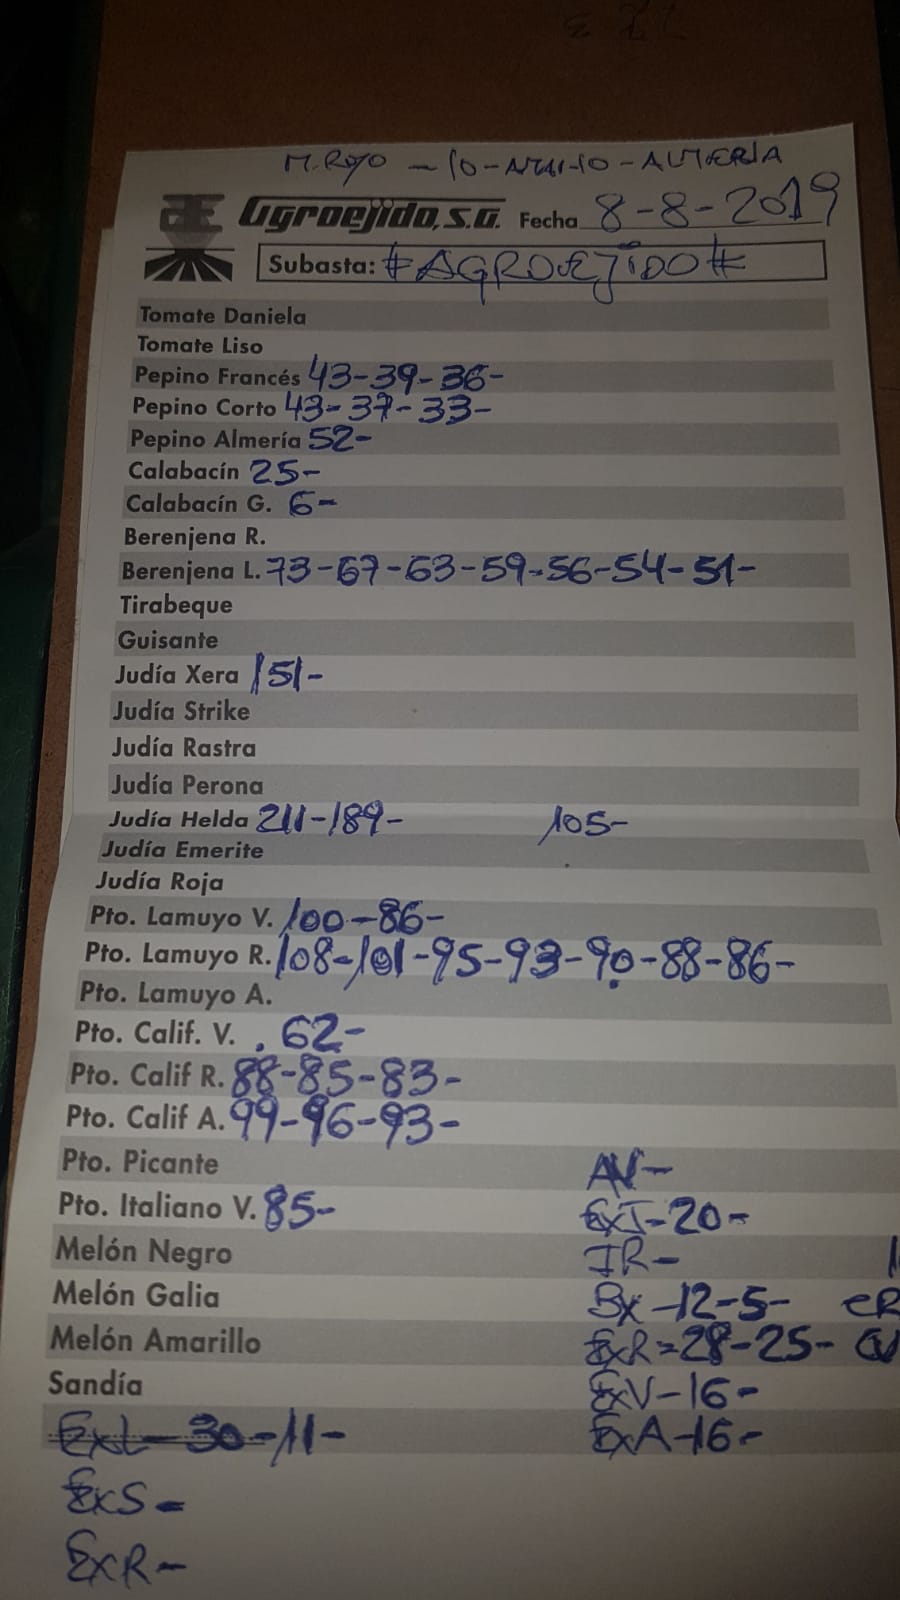 M. ROYO - 10- - ALMERÍA
Agroejido, S.A. Fecha 8-8-2019
Subasta: #AGROEJIDO#
Tomate Daniela
Tomate Liso
Pepino Francés 43-39-36-
Pepino Corto 43-37-33-
Pepino Almería 52-
Calabacín 25-
Calabacín G. 6-
Berenjena R.
Berenjena L. 73-67-63-59-56-54-51-
Tirabeque
Guisante
Judía Xera 151-
Judía Strike
Judía Rastra
Judía Perona
Judía Helda 211-189- 105-
Judía Emerite
Judía Roja
Pto. Lamuyo V. 100-86-
Pto. Lamuyo R. 108-101-95-93-90-88-86-
Pto. Lamuyo A.
Pto. Calif. V. . 62-
Pto. Calif R. 88-85-83-
Pto. Calif A. 99-96-93-
Pto. Picante AV-
Pto. Italiano V. 85- ExI-20-
Melón Negro IR-
Melón Galia Bx-12-5- CR
Melón Amarillo ExR=28-25- CV
Sandía ExV-16-
ExL-30-11- ExA-16-
ExS-
ExR-